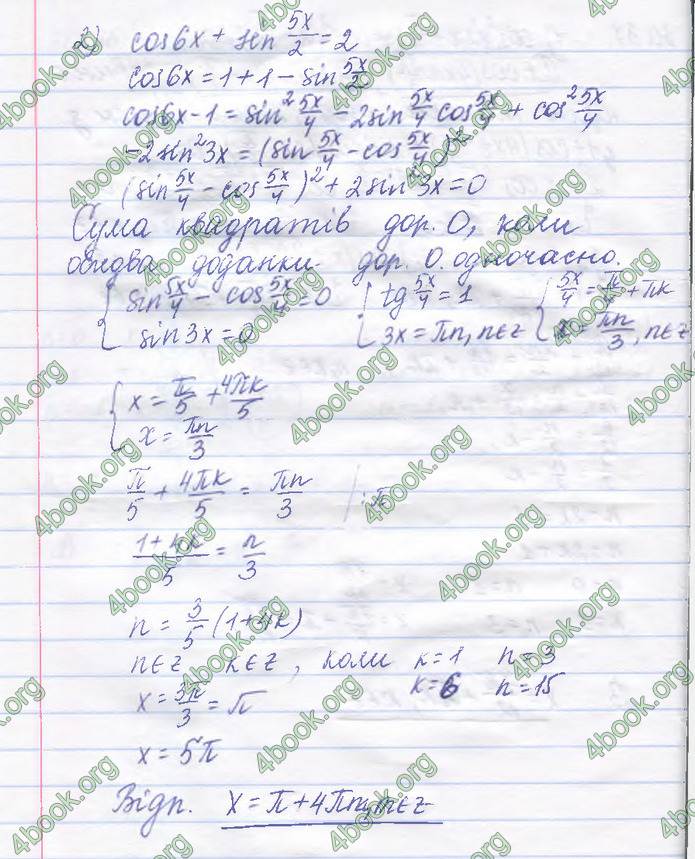 2) cos6x + sin 5x/2 = 2
cos6x = 1 + 1 - sin 5x/2
cos6x - 1 = sin² 5x/4 - 2sin 5x/4 cos 5x/4 + cos² 5x/4
-2sin²3x = (sin 5x/4 - cos 5x/4)²
(sin 5x/4 - cos 5x/4)² + 2sin²3x = 0
Сума квадратів дор. 0, коли
обидва доданки дор. 0 одночасно.
{ sin 5x/4 - cos 5x/4 = 0 { tg 5x/4 = 1 { 5x/4 = π/4 + πk
sin3x = 0 3x = πn, n∈z x = πn/3, n∈z
{ x = π/5 + 4πk/5
x = πn/3
π/5 + 4πk/5 = πn/3 | :π
1+4k/5 = n/3
n = 3/5 (1+4k)
n∈z k∈z, коли k=1 n=3
k=6 n=15
x = 3π/3 = π
x = 5π
Відп. x = π + 4πn, n∈z
4book.org